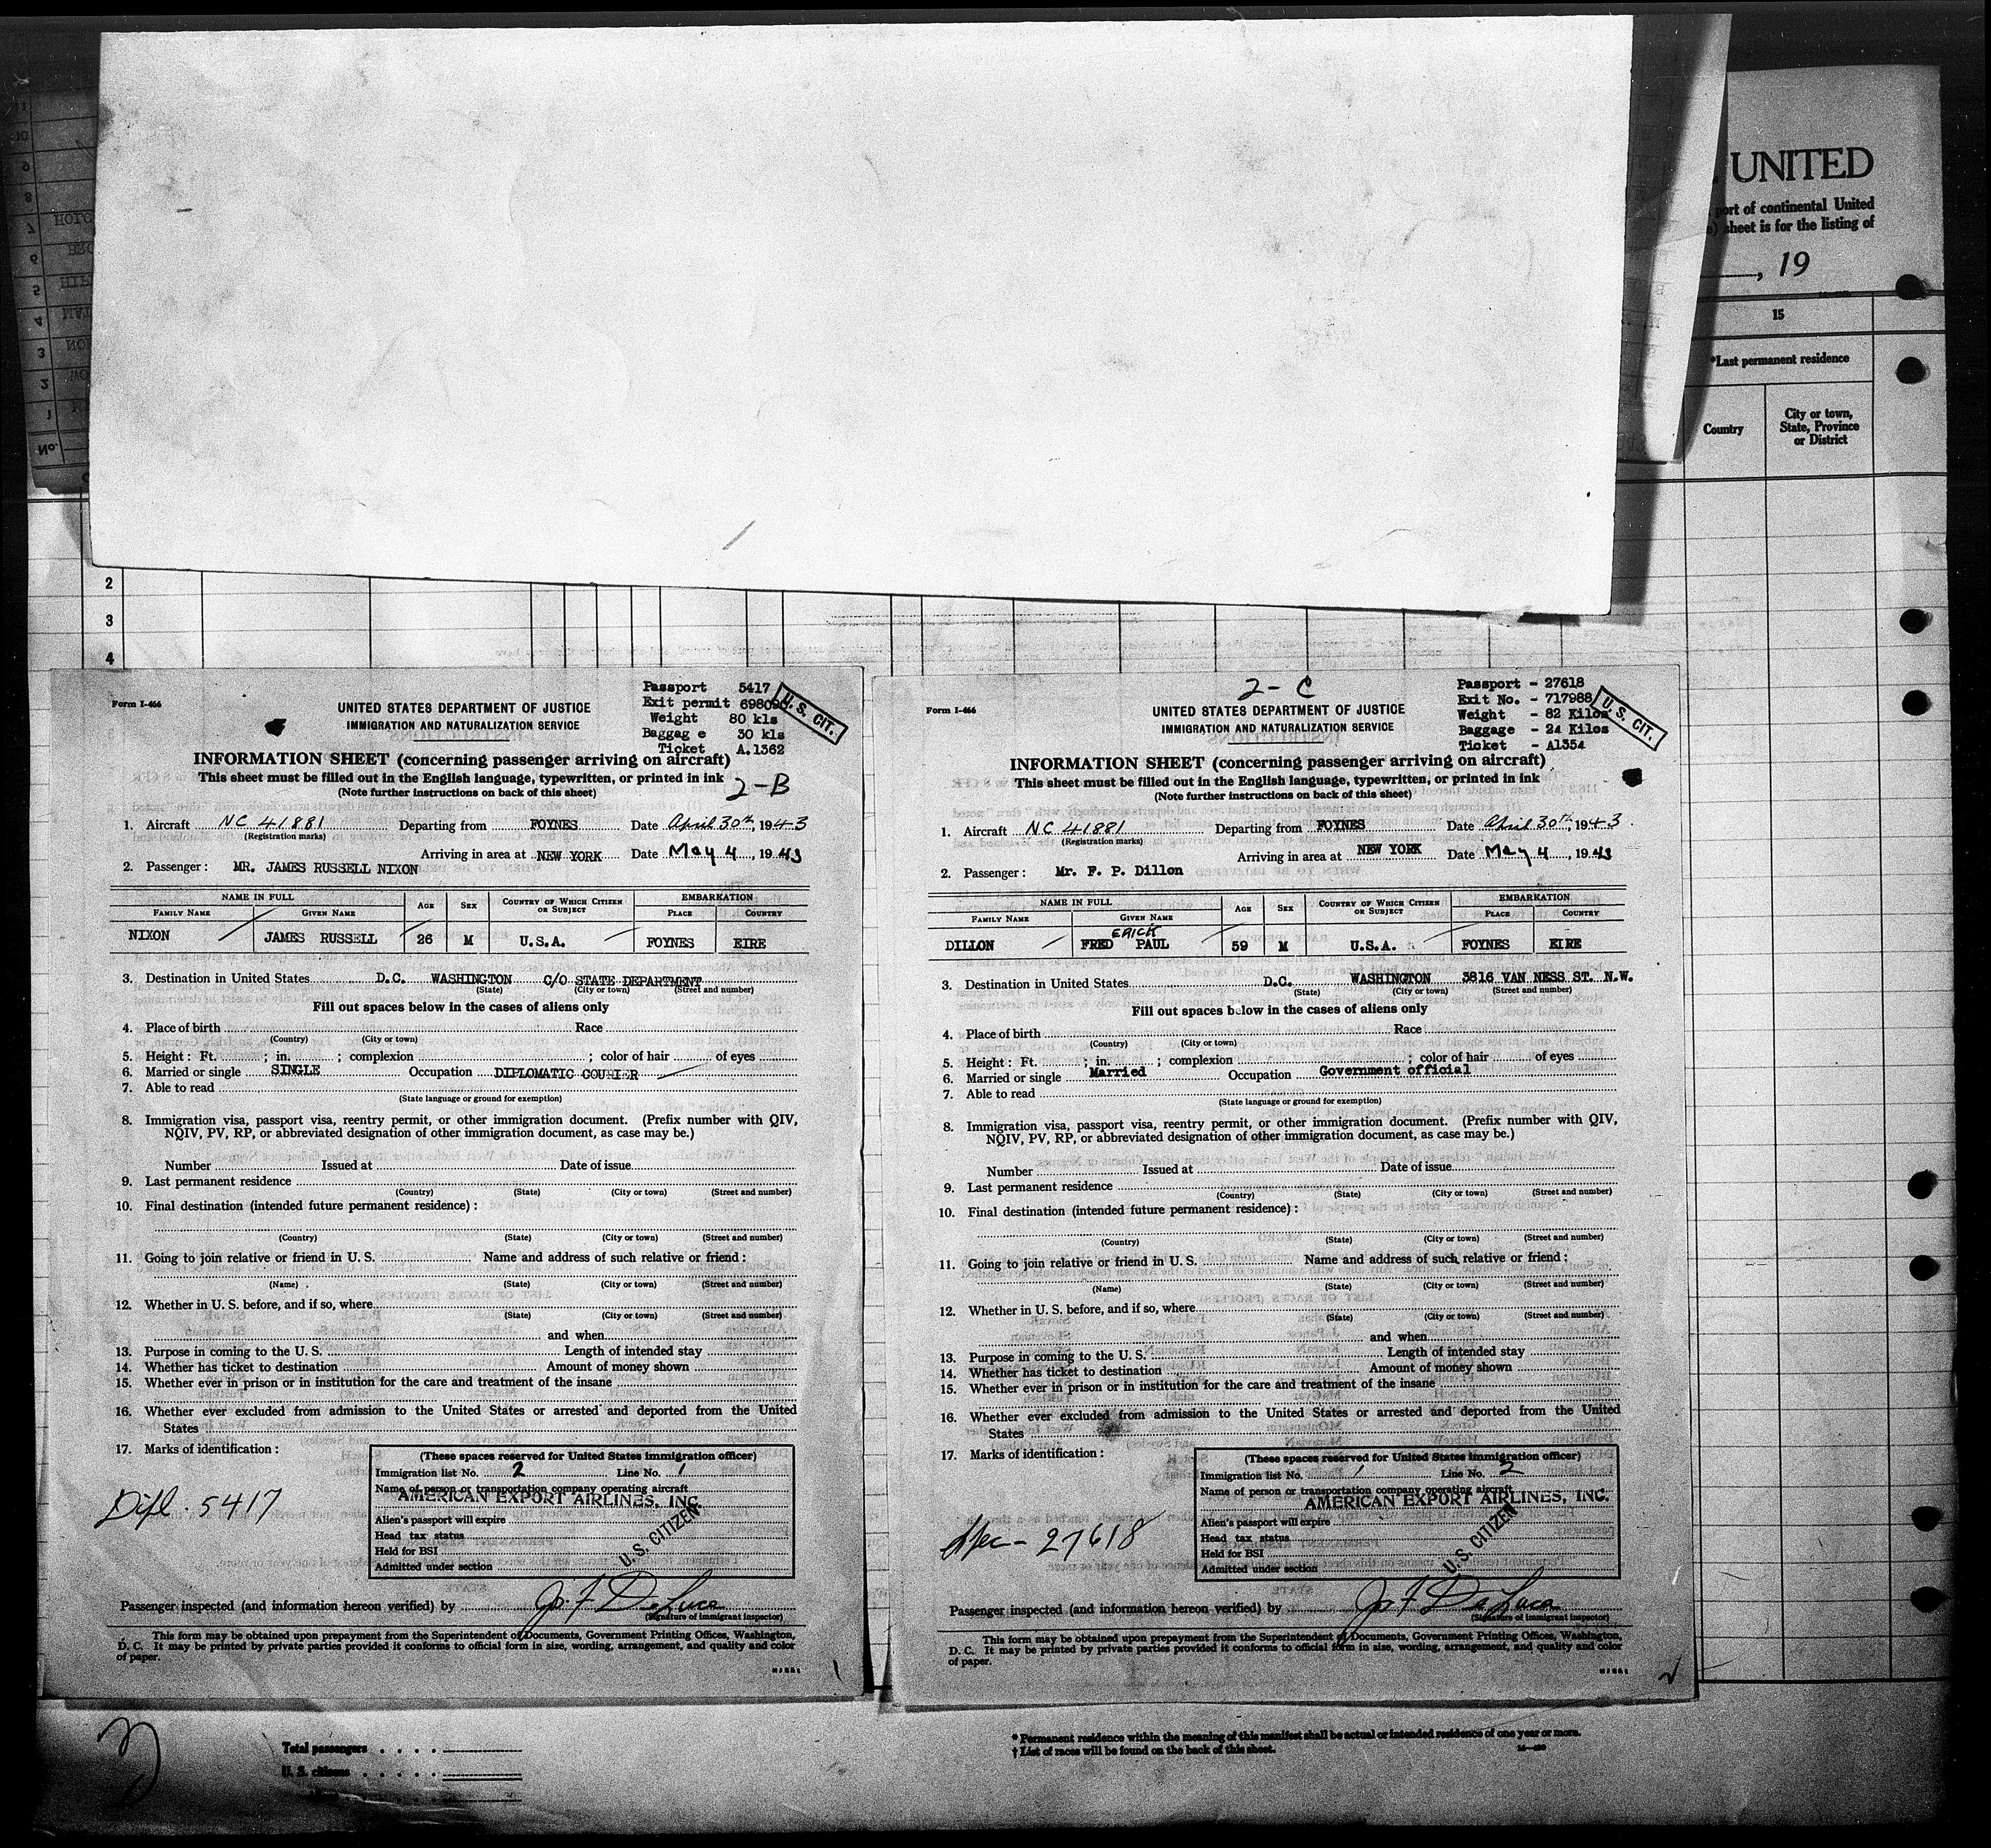 UNITED
port of continental United
sheet is for the listing of
, 19
15
*Last permanent residence
Country
City or town,
State, Province
or District
2
3
4
Form I-466
UNITED STATES DEPARTMENT OF JUSTICE
IMMIGRATION AND NATURALIZATION SERVICE
Passport 5417
Exit permit 69809
Weight 80 kls
Baggag e 30 kls
Ticket A.1362
U. S. CIT.
INFORMATION SHEET (concerning passenger arriving on aircraft)
This sheet must be filled out in the English language, typewritten, or printed in ink
(Note further instructions on back of this sheet)
2-B
1. Aircraft NC 41881 Departing from FOYNES Date April 30th, 1943
(Registration marks)
Arriving in area at NEW YORK Date May 4, 1943
2. Passenger: MR. JAMES RUSSELL NIXON
NAME IN FULL AGE SEX COUNTRY OF WHICH CITIZEN OR SUBJECT EMBARKATION
FAMILY NAME GIVEN NAME PLACE COUNTRY
NIXON JAMES RUSSELL 26 M U.S.A. FOYNES EIRE
3. Destination in United States D.C. WASHINGTON C/O STATE DEPARTMENT
(State) (City or town) (Street and number)
Fill out spaces below in the cases of aliens only
4. Place of birth Race
(Country) (City or town)
5. Height: Ft. ; in. ; complexion ; color of hair of eyes
6. Married or single SINGLE Occupation DIPLOMATIC COURIER
7. Able to read
(State language or ground for exemption)
8. Immigration visa, passport visa, reentry permit, or other immigration document. (Prefix number with QIV,
NQIV, PV, RP, or abbreviated designation of other immigration document, as case may be.)
Number Issued at Date of issue
9. Last permanent residence
(Country) (State) (City or town) (Street and number)
10. Final destination (intended future permanent residence):
(Country) (State) (City or town) (Street and number)
11. Going to join relative or friend in U. S. Name and address of such relative or friend:
(Name) (State) (City or town) (Street and number)
12. Whether in U. S. before, and if so, where
(State) (City or town) (Street and number)
and when
13. Purpose in coming to the U. S. Length of intended stay
14. Whether has ticket to destination Amount of money shown
15. Whether ever in prison or in institution for the care and treatment of the insane
16. Whether ever excluded from admission to the United States or arrested and deported from the United
States
17. Marks of identification:
(These spaces reserved for United States immigration officer)
Immigration list No. 2 Line No. 1
Name of person or transportation company operating aircraft
AMERICAN EXPORT AIRLINES, INC.
Alien's passport will expire
Head tax status
Held for BSI
Admitted under section
U. S. CITIZEN
Dipl. 5417
Passenger inspected (and information hereon verified) by Jos F De Luca
(Signature of immigrant inspector)
This form may be obtained upon prepayment from the Superintendent of Documents, Government Printing Offices, Washington,
D. C. It may be printed by private parties provided it conforms to official form in size, wording, arrangement, and quality and color
of paper.
1
Form I-466
2-C
UNITED STATES DEPARTMENT OF JUSTICE
IMMIGRATION AND NATURALIZATION SERVICE
Passport - 27618
Exit No. - 717988
Weight - 82 Kilos
Baggage - 24 Kilos
Ticket - A1354
U. S. CIT.
INFORMATION SHEET (concerning passenger arriving on aircraft)
This sheet must be filled out in the English language, typewritten, or printed in ink
(Note further instructions on back of this sheet)
1. Aircraft NC 41881 Departing from FOYNES Date April 30th, 1943
(Registration marks)
Arriving in area at NEW YORK Date May 4, 1943
2. Passenger: Mr. F. P. Dillon
NAME IN FULL AGE SEX COUNTRY OF WHICH CITIZEN OR SUBJECT EMBARKATION
FAMILY NAME GIVEN NAME PLACE COUNTRY
ERICK
DILLON FRED PAUL 59 M U.S.A. FOYNES EIRE
3. Destination in United States D.C. WASHINGTON 3816 VAN NESS ST. N.W.
(State) (City or town) (Street and number)
Fill out spaces below in the cases of aliens only
4. Place of birth Race
(Country) (City or town)
5. Height: Ft. ; in. ; complexion ; color of hair of eyes
6. Married or single Married Occupation Government official
7. Able to read
(State language or ground for exemption)
8. Immigration visa, passport visa, reentry permit, or other immigration document. (Prefix number with QIV,
NQIV, PV, RP, or abbreviated designation of other immigration document, as case may be.)
Number Issued at Date of issue
9. Last permanent residence
(Country) (State) (City or town) (Street and number)
10. Final destination (intended future permanent residence):
(Country) (State) (City or town) (Street and number)
11. Going to join relative or friend in U. S. Name and address of such relative or friend:
(Name) (State) (City or town) (Street and number)
12. Whether in U. S. before, and if so, where
(State) (City or town) (Street and number)
and when
13. Purpose in coming to the U. S. Length of intended stay
14. Whether has ticket to destination Amount of money shown
15. Whether ever in prison or in institution for the care and treatment of the insane
16. Whether ever excluded from admission to the United States or arrested and deported from the United
States
17. Marks of identification:
(These spaces reserved for United States immigration officer)
Immigration list No. 1 Line No. 2
Name of person or transportation company operating aircraft
AMERICAN EXPORT AIRLINES, INC.
Alien's passport will expire
Head tax status
Held for BSI
Admitted under section
U. S. CITIZEN
Spec - 27618
Passenger inspected (and information hereon verified) by Jos F De Luca
(Signature of immigrant inspector)
This form may be obtained upon prepayment from the Superintendent of Documents, Government Printing Offices, Washington,
D. C. It may be printed by private parties provided it conforms to official form in size, wording, arrangement, and quality and color
of paper.
2
Total passengers
U. S. citizens
* Permanent residence within the meaning of this manifest shall be actual or intended residence of one year or more.
† List of races will be found on the back of this sheet.